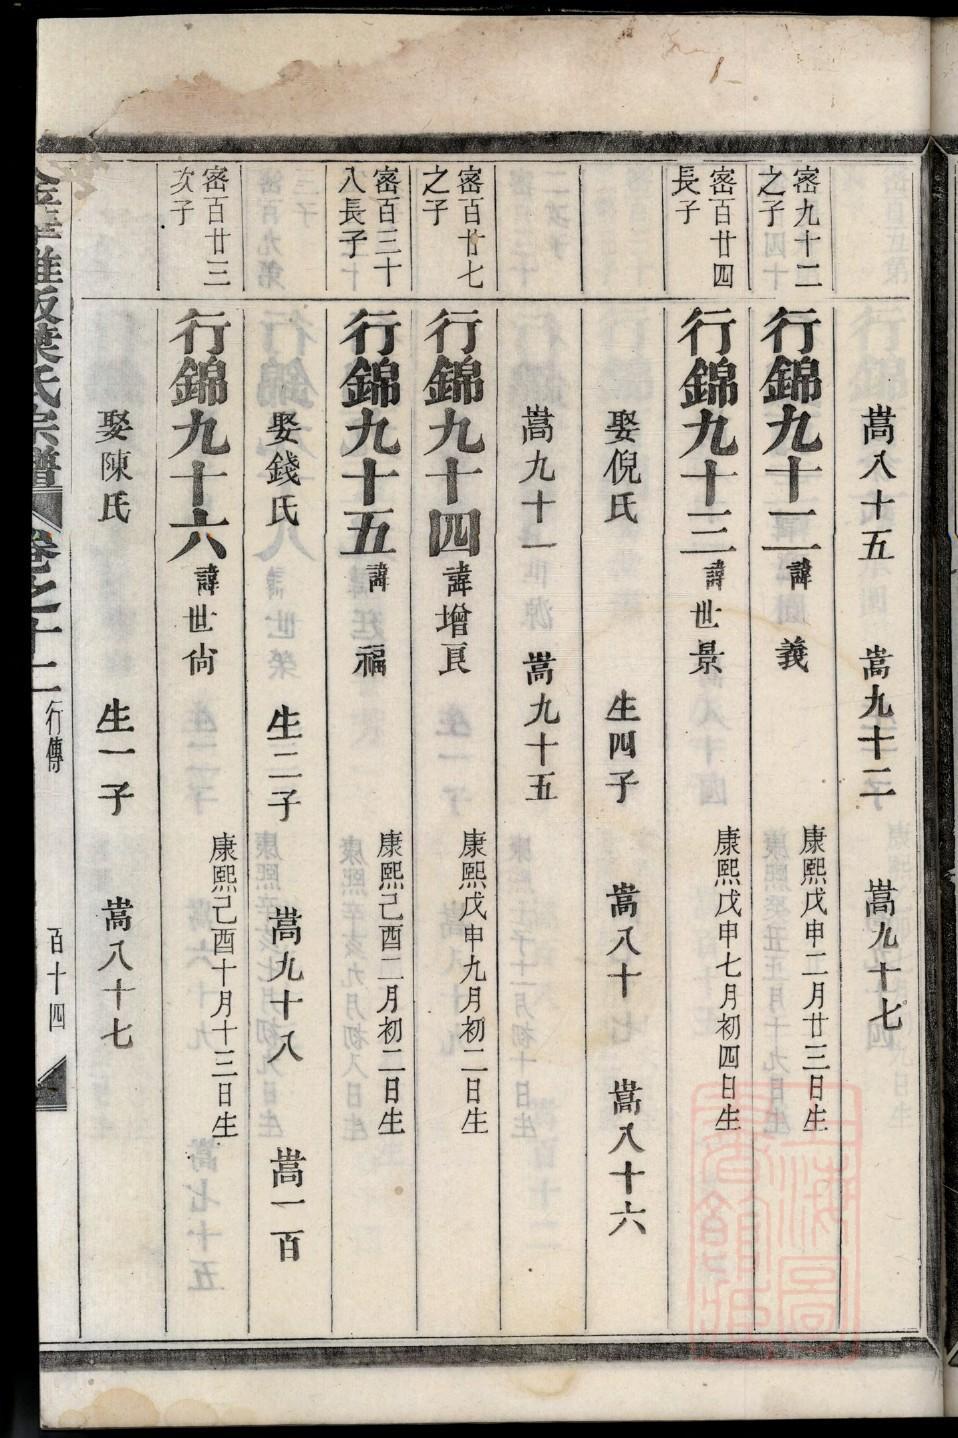 嵩八十五 嵩九十二 嵩九十七
密九十二之子
行錦九十二 諱義 康熙戊申二月廿三日生
密百廿四長子
行錦九十三 諱世景 康熙戊申七月初四日生
娶倪氏 生四子 嵩八十 嵩八十六
嵩九十一 嵩九十五
密百廿七之子
行錦九十四 諱增良 康熙戊申九月初二日生
密百三十八長子
行錦九十五 諱福 康熙己酉二月初二日生
娶錢氏 生二子 嵩九十八 嵩一百
密百廿三次子
行錦九十六 諱世尙 康熙己酉十月十三日生
娶陳氏 生一子 嵩八十七
葉氏宗譜 卷之十二 行傳 百十四